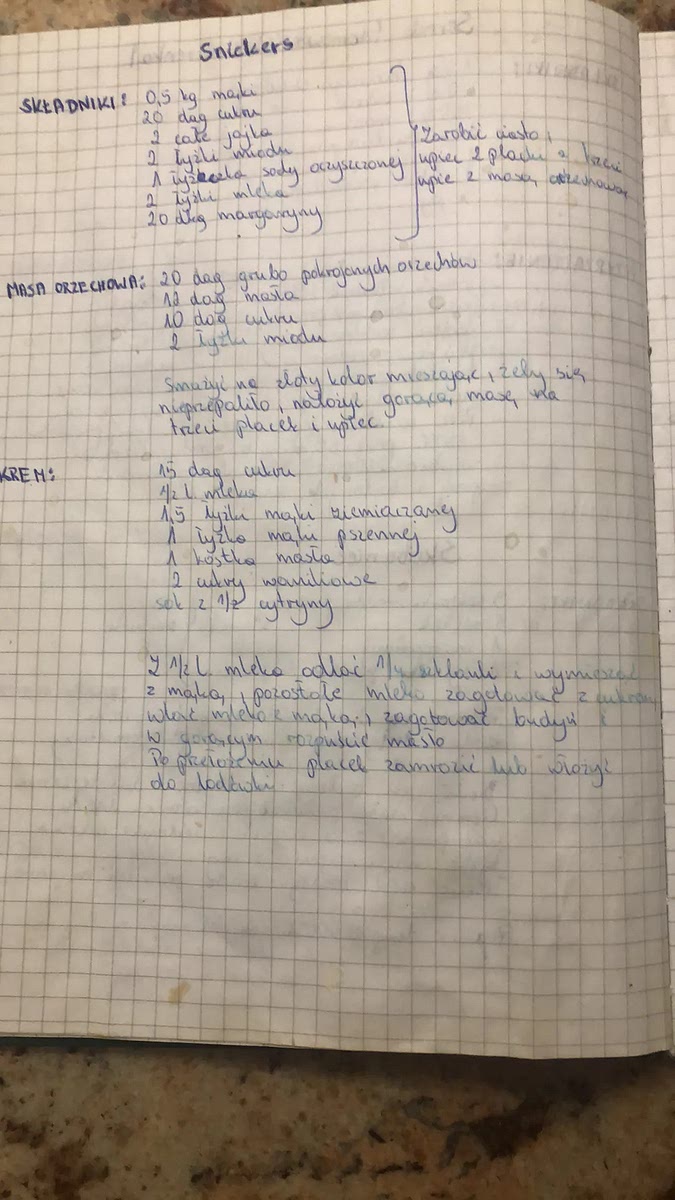 Snickers
SKŁADNIKI: 0,5 kg mąki
20 dag cukru
2 całe jajka
2 łyżki miodu
1 łyżeczka sody oczyszczonej
2 łyżki mleka
20 dkg margaryny
Zarobić ciasto,
upiec 2 placki a trzeci
upie z masą orzechową
MASA ORZECHOWA: 20 dag grubo pokrojonych orzechów
12 dag masła
10 dag cukru
2 łyżki miodu
Smażyć na złoty kolor mieszając, żeby się
nieprzepaliło, nałożyć gorącą masę na
trzeci placek i upiec
KREM: 15 dag cukru
1/2 l mleka
1,5 łyżki mąki ziemiaczanej
1 łyżka mąki pszennej
1 kostka masła
2 cukry waniliowe
sok z 1/2 cytryny
Z 1/2 l mleka odlać 1/4 szklanki i wymieszać
z mąką, pozostałe mleko zagotować z cukrem,
wlać mleko z mąką, zagotować budyń i
w gorącym rozpuścić masło
Po przełożeniu placek zamrozić lub włożyć
do lodówki